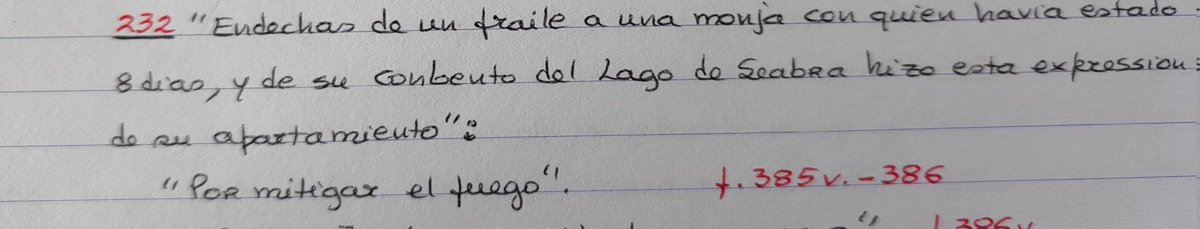 232 "Endechas de un fraile a una monja con quien havia estado
8 dias, y de su conbento del Lago de Seabra hizo esta expression
de su apartamiento":
"Por mitigar el fuego". f. 385 v. - 386